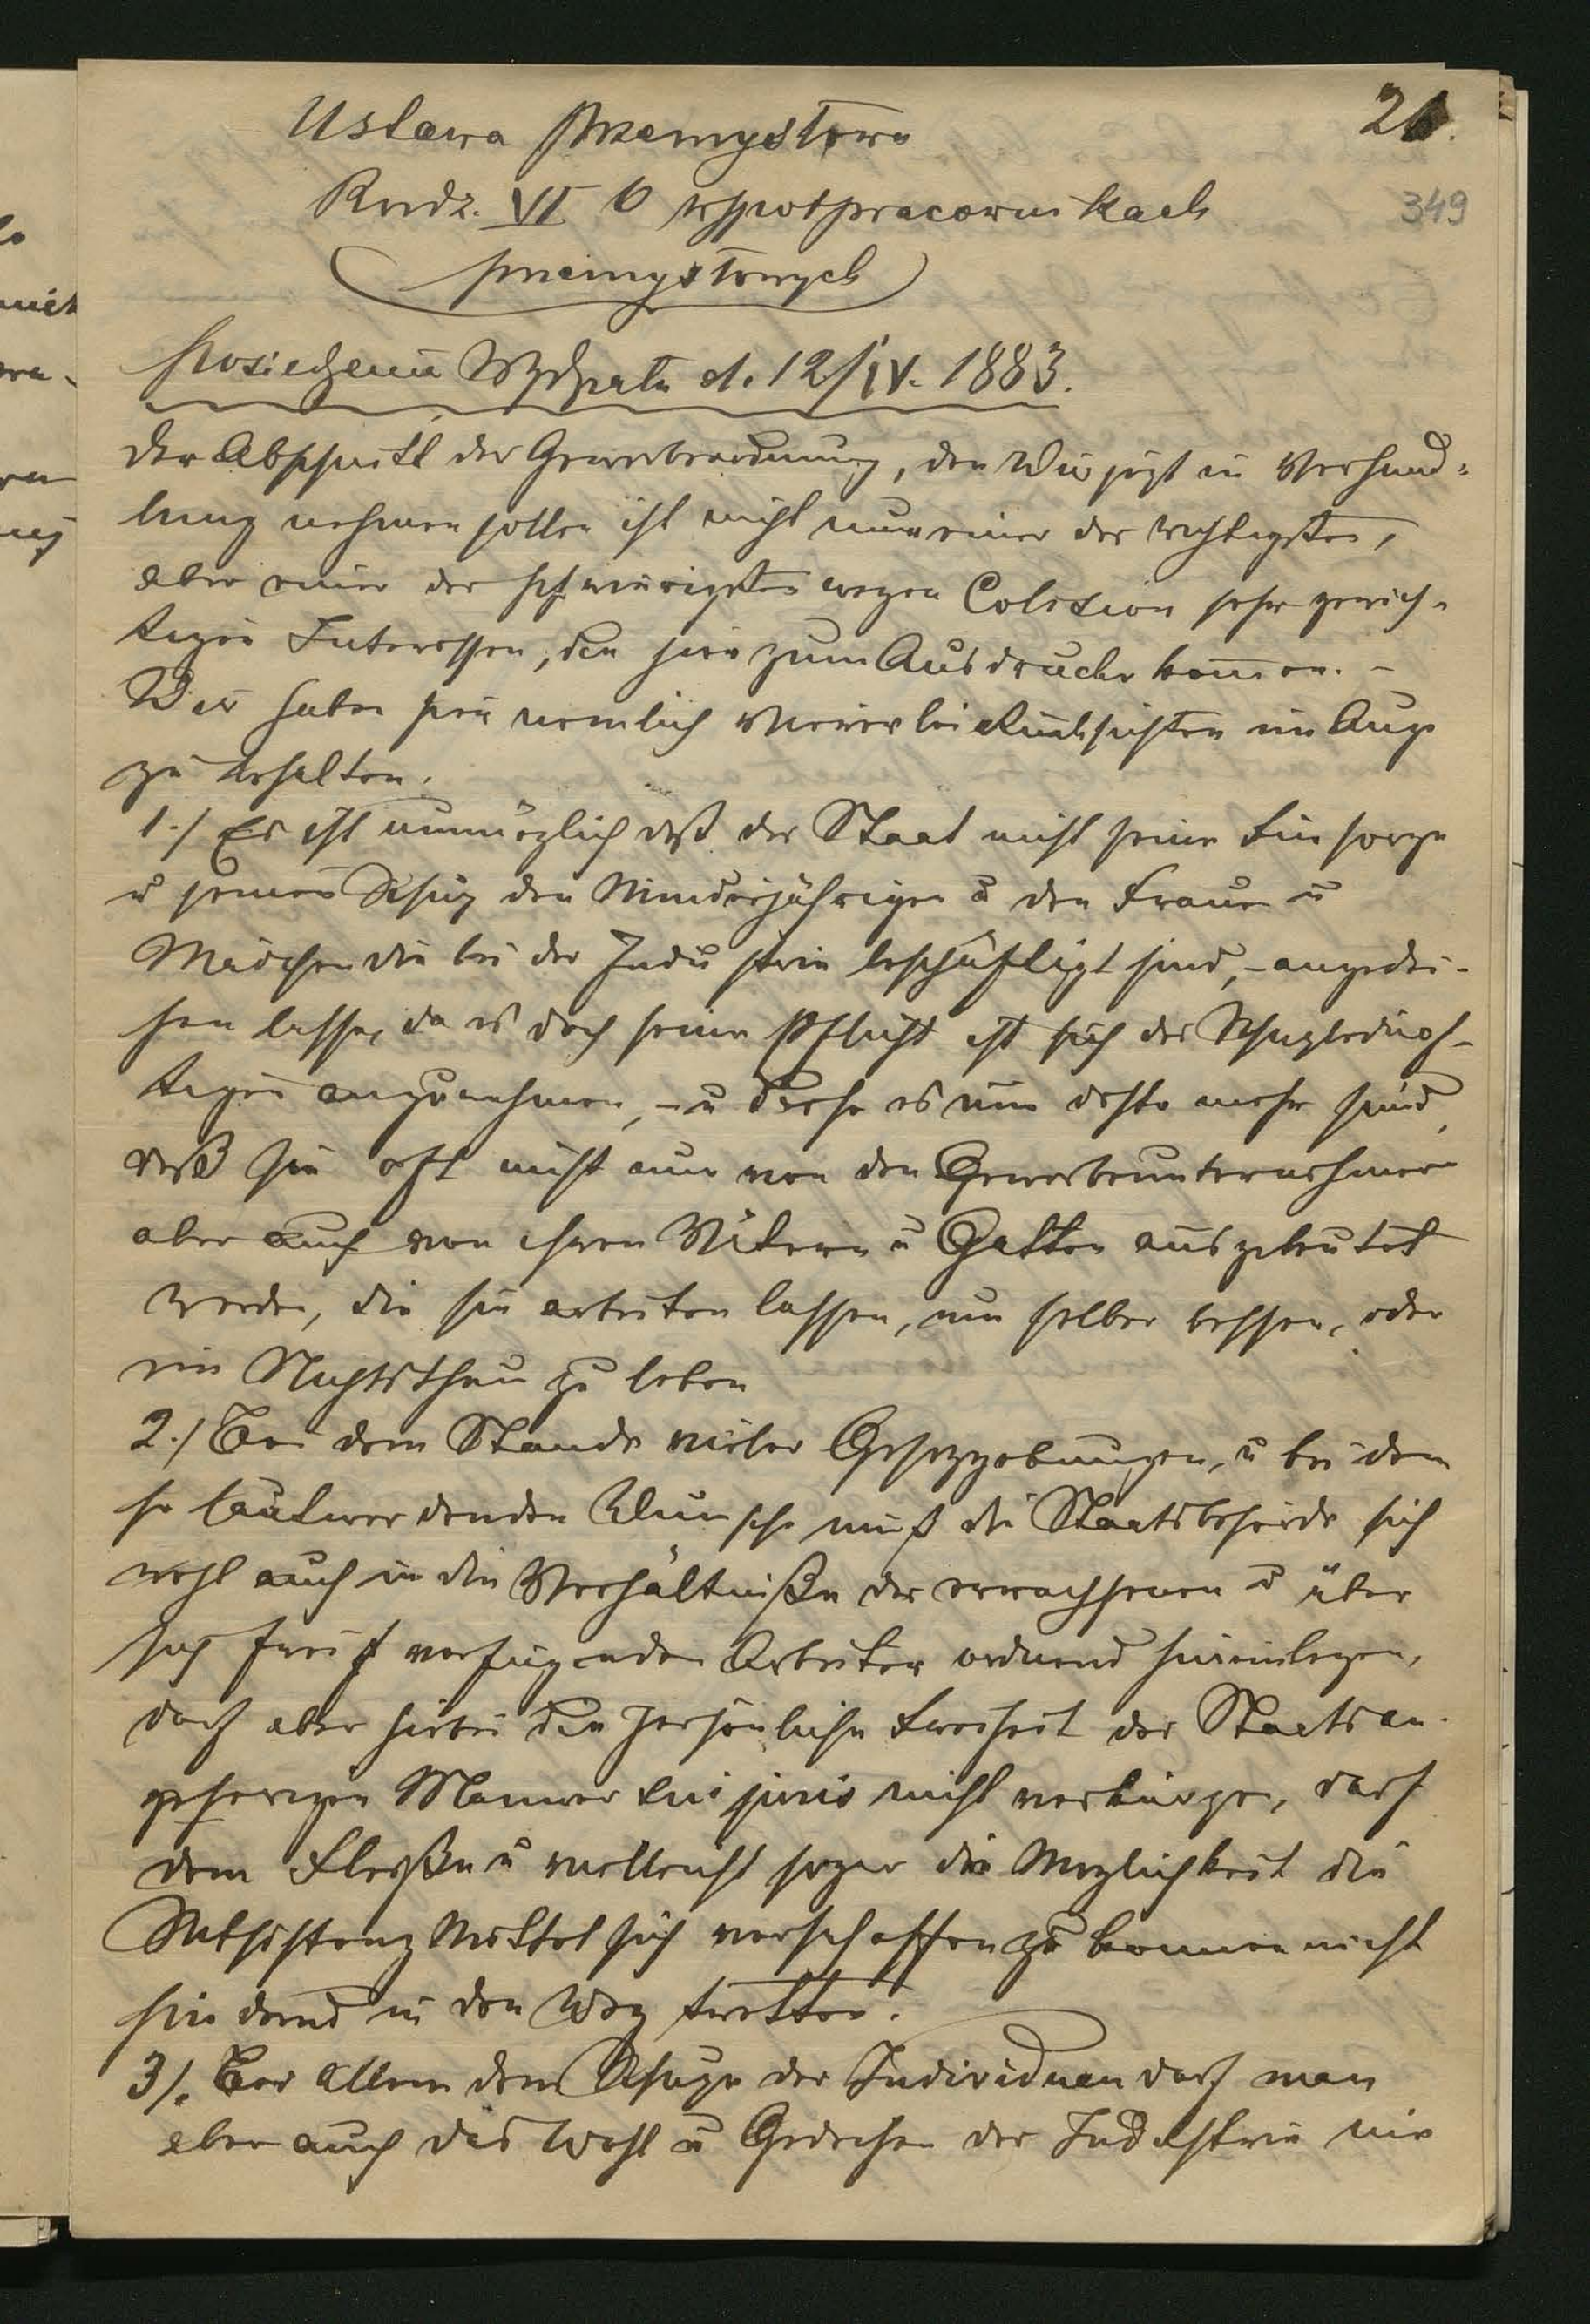 21.
Ustawa przemysłowa
349
Rozdz. VI o współpracownikach
przemysłowych
posiedzenie Wydziału d. 12/IV. 1883.
Der Abschnitt der Gewerbeordnung, den Wir jetzt in Verhand-
lung nehmen sollen ist nicht nur einer der wichtigsten,
aber einer der schwierigsten wegen Colision sehr gewich-
tigen Interessen, die hier zum Ausdrucke kommen. -
Wir haben hier nemlich dreierlei Rücksichten im Auge
zu behalten.
1./ Es ist unmöglich daß der Staat nicht seine Fürsorge
u seinen Schutz den Minderjährigen u den Frauen u
Mädchen die bei der Industrie beschäftigt sind, - angedei-
hen lasse, da es doch seine Pflicht ist sich der Schutzbedürf-
tigen anzunehmen, - u diese es um desto mehr sind,
daß sie oft nicht nur von den Gewerbeunternehmern
aber auch von ihren Vätern u Gatten ausgebeutet
werden, die sie arbeiten lassen, um selber besser, oder
im Nichtsthun zu leben
2./ Bei dem Stande vieler Gesetzgebungen, u bei dem
so lautwerdenden Wunsche muß die Staatsbehörde sich
wohl auch in die Verhältniße der erwachsenen u über
sich frei verfügenden Arbeiter ordnend hineinlegen,
darf aber hiebei die persönliche Freiheit der Staatsan-
gehorigen Männer sui juris nicht verkürzen, darf
dem Fleiße u vielleicht sogar die Möglichkeit die
Subsistenz Mittel sich verschaffen zu konnen nicht
hindernd in den Weg tretten.
3/. Bei allem dem Schutze der Individuen darf man
aber auch das Wohl u Gedeihen der Industrie nie